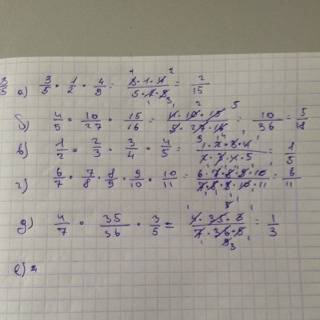 а) 3/5 · 1/2 · 4/9 = 3·1·4/5·2·9 = 2/15
б) 4/5 · 10/27 · 15/16 = 4·10·15/5·27·16 = 10/36 = 5/18
в) 1/2 · 2/3 · 3/4 · 4/5 = 1·2·3·4/2·3·4·5 = 1/5
г) 6/7 · 7/8 · 8/9 · 9/10 · 10/11 = 6·7·8·9·10/7·8·9·10·11 = 6/11
д) 4/7 · 35/36 · 3/5 = 4·35·3/7·36·5 = 1/3
е)